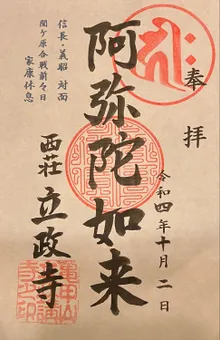 奉拝
令和四年十月二日
阿弥陀如来
西荘 立政寺
信長・義昭 対面
関ヶ原合戦前々日
家康休息